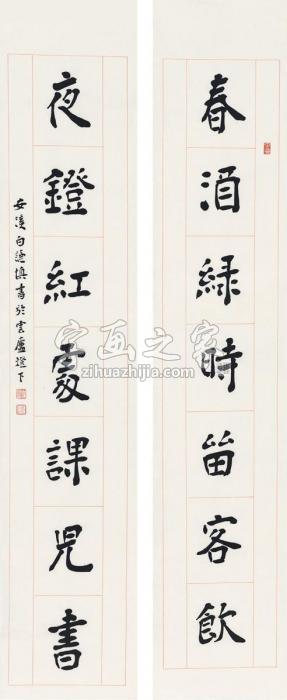 春酒綠時留客飲
夜鐙紅處課兒書
安溪白謙慎書於雲廬鐙下
字画之家
zihuazhijia.com